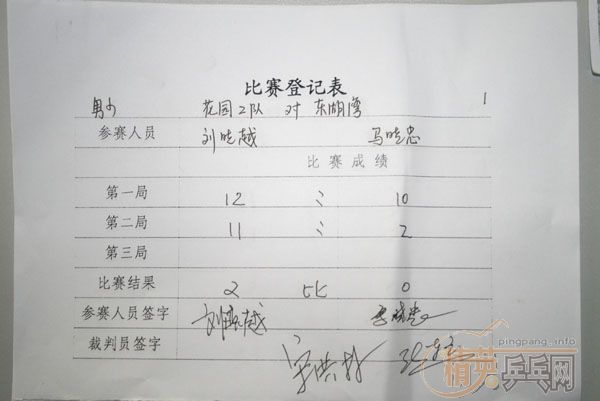 比赛登记表
男少 花园2队 对 东湖湾 1
参赛人员 刘晓越 马晓忠
比赛成绩
第一局 12 : 10
第二局 11 : 2
第三局
比赛结果 2 比 0
参赛人员签字 刘晓越
裁判员签字
pingpang.info
精英乒乓网